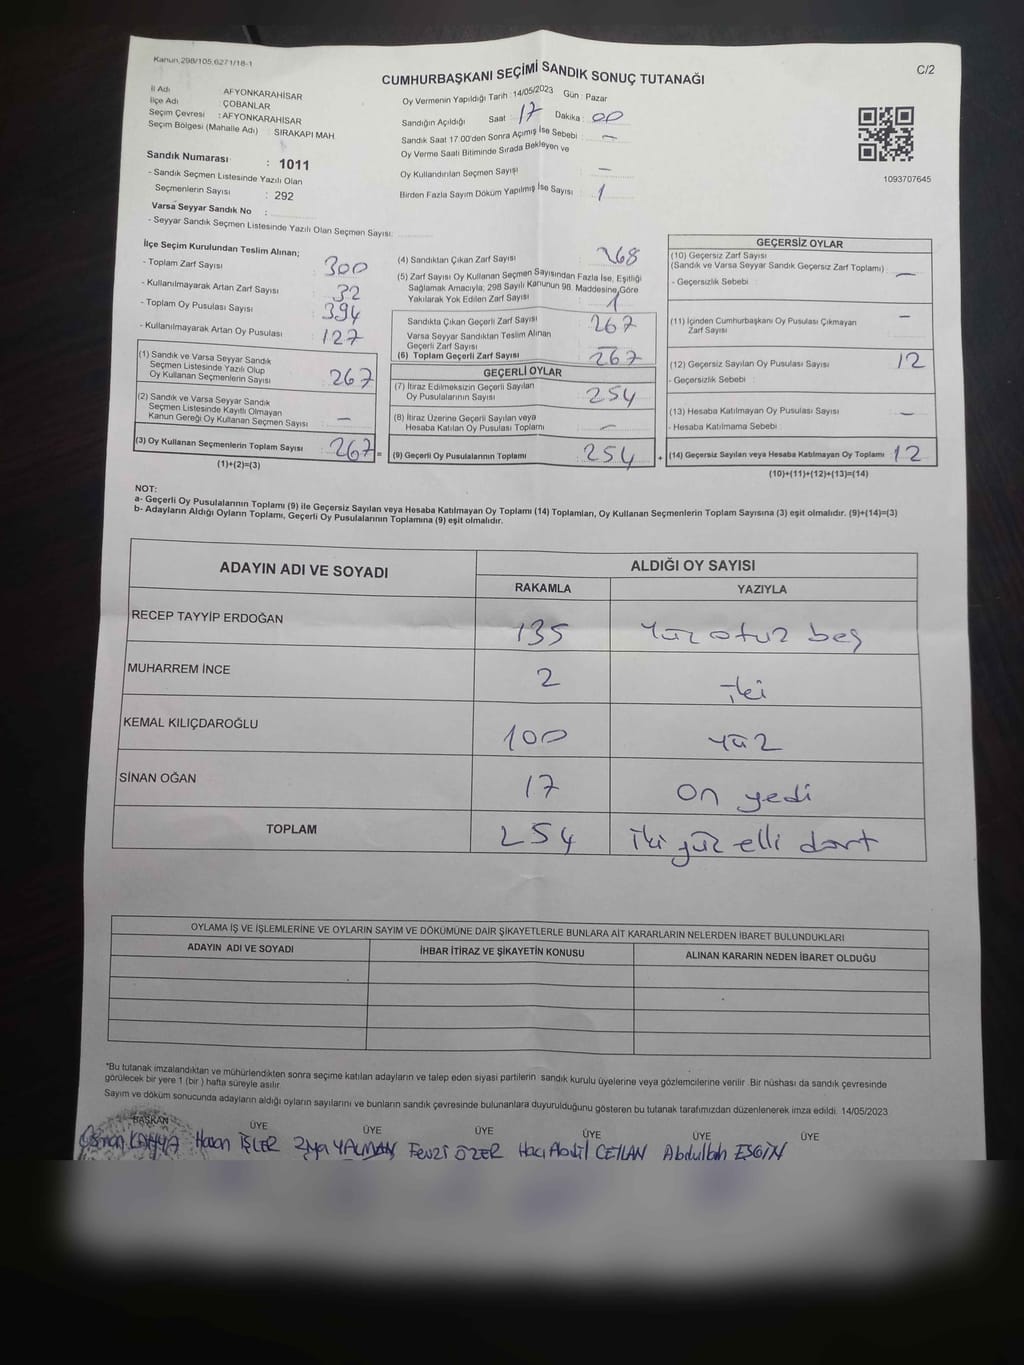 Kanun.298/105,6271/18-1
C/2
CUMHURBAŞKANI SEÇİMİ SANDIK SONUÇ TUTANAĞI
İl Adı AFYONKARAHİSAR
İlçe Adı ÇOBANLAR
Seçim Çevresi : AFYONKARAHİSAR
Seçim Bölgesi (Mahalle Adı) : SIRAKAPI MAH.
Sandık Numarası : 1011
- Sandık Seçmen Listesinde Yazılı Olan
Seçmenlerin Sayısı : 292
Varsa Seyyar Sandık No :
- Seyyar Sandık Seçmen Listesinde Yazılı Olan Seçmen Sayısı:
Oy Vermenin Yapıldığı Tarih : 14/05/2023 Gün : Pazar
Sandığın Açıldığı Saat : 17 Dakika : 00
Sandık Saat 17.00'den Sonra Açımış İse Sebebi : —
Oy Verme Saati Bitiminde Sırada Bekleyen ve
Oy Kullandırılan Seçmen Sayışı : —
Birden Fazla Sayım Döküm Yapılmış İse Sayısı : 1
1093707645
İlçe Seçim Kurulundan Teslim Alınan;
- Toplam Zarf Sayısı : 300
- Kullanılmayarak Artan Zarf Sayısı : 32
- Toplam Oy Pusulası Sayısı : 394
- Kullanılmayarak Artan Oy Pusulası : 127
(1) Sandık ve Varsa Seyyar Sandık
Seçmen Listesinde Yazılı Olup
Oy Kullanan Seçmenlerin Sayısı : 267
(2) Sandık ve Varsa Seyyar Sandık
Seçmen Listesinde Kayıtlı Olmayan
Kanun Gereği Oy Kullanan Seçmen Sayısı : —
(3) Oy Kullanan Seçmenlerin Toplam Sayısı : 267 =
(1)+(2)=(3)
(4) Sandıktan Çıkan Zarf Sayısı : 268
(5) Zarf Sayısı Oy Kullanan Seçmen Sayısından Fazla İse, Eşitliği
Sağlamak Amacıyla; 298 Sayılı Kanunun 98. Maddesine Göre
Yakılarak Yok Edilen Zarf Sayısı : 1
Sandıkta Çıkan Geçerli Zarf Sayısı : 267
Varsa Seyyar Sandıktan Teslim Alınan
Geçerli Zarf Sayısı : —
(6) Toplam Geçerli Zarf Sayısı : 267
GEÇERLİ OYLAR
(7) İtiraz Edilmeksizin Geçerli Sayılan
Oy Pusulalarının Sayısı : 254
(8) İtiraz Üzerine Geçerli Sayılan veya
Hesaba Katılan Oy Pusulası Toplamı : —
(9) Geçerli Oy Pusulalarının Toplamı : 254 +
GEÇERSİZ OYLAR
(10) Geçersiz Zarf Sayısı
(Sandık ve Varsa Seyyar Sandık Geçersiz Zarf Toplamı) : —
- Geçersizlik Sebebi :
(11) İçinden Cumhurbaşkanı Oy Pusulası Çıkmayan
Zarf Sayısı : —
(12) Geçersiz Sayılan Oy Pusulası Sayısı : 12
- Geçersizlik Sebebi :
(13) Hesaba Katılmayan Oy Pusulası Sayısı : —
- Hesaba Katılmama Sebebi :
(14) Geçersiz Sayılan veya Hesaba Katılmayan Oy Toplamı : 12
(10)+(11)+(12)+(13)=(14)
NOT:
a- Geçerli Oy Pusulalarının Toplamı (9) ile Geçersiz Sayılan veya Hesaba Katılmayan Oy Toplamı (14) Toplamları, Oy Kullanan Seçmenlerin Toplam Sayısına (3) eşit olmalıdır. (9)+(14)=(3)
b- Adayların Aldığı Oyların Toplamı, Geçerli Oy Pusulalarının Toplamına (9) eşit olmalıdır.
ADAYIN ADI VE SOYADI ALDIĞI OY SAYISI
RAKAMLA YAZIYLA
RECEP TAYYİP ERDOĞAN 135 Yüz otuz beş
MUHARREM İNCE 2 iki
KEMAL KILIÇDAROĞLU 100 yüz
SİNAN OĞAN 17 on yedi
TOPLAM 254 iki yüz elli dört
OYLAMA İŞ VE İŞLEMLERİNE VE OYLARIN SAYIM VE DÖKÜMÜNE DAİR ŞİKAYETLERLE BUNLARA AİT KARARLARIN NELERDEN İBARET BULUNDUKLARI
ADAYIN ADI VE SOYADI İHBAR İTİRAZ VE ŞİKAYETİN KONUSU ALINAN KARARIN NEDEN İBARET OLDUĞU
*Bu tutanak imzalandıktan ve mühürlendikten sonra seçime katılan adayların ve talep eden siyasi partilerin sandık kurulu üyelerine veya gözlemcilerine verilir .Bir nüshası da sandık çevresinde
görülecek bir yere 1 (bir ) hafta süreyle asılır.
Sayım ve döküm sonucunda adayların aldığı oyların sayılarını ve bunların sandık çevresinde bulunanlara duyurulduğunu gösteren bu tutanak tarafımızdan düzenlenerek imza edildi. 14/05/2023
BAŞKAN ÜYE ÜYE ÜYE ÜYE ÜYE ÜYE
Osman KAHYA Hasan İŞLER Ziya YALMAN Fevzi ÖZER Hacı Abdil CEYLAN Abdullah ESGİN